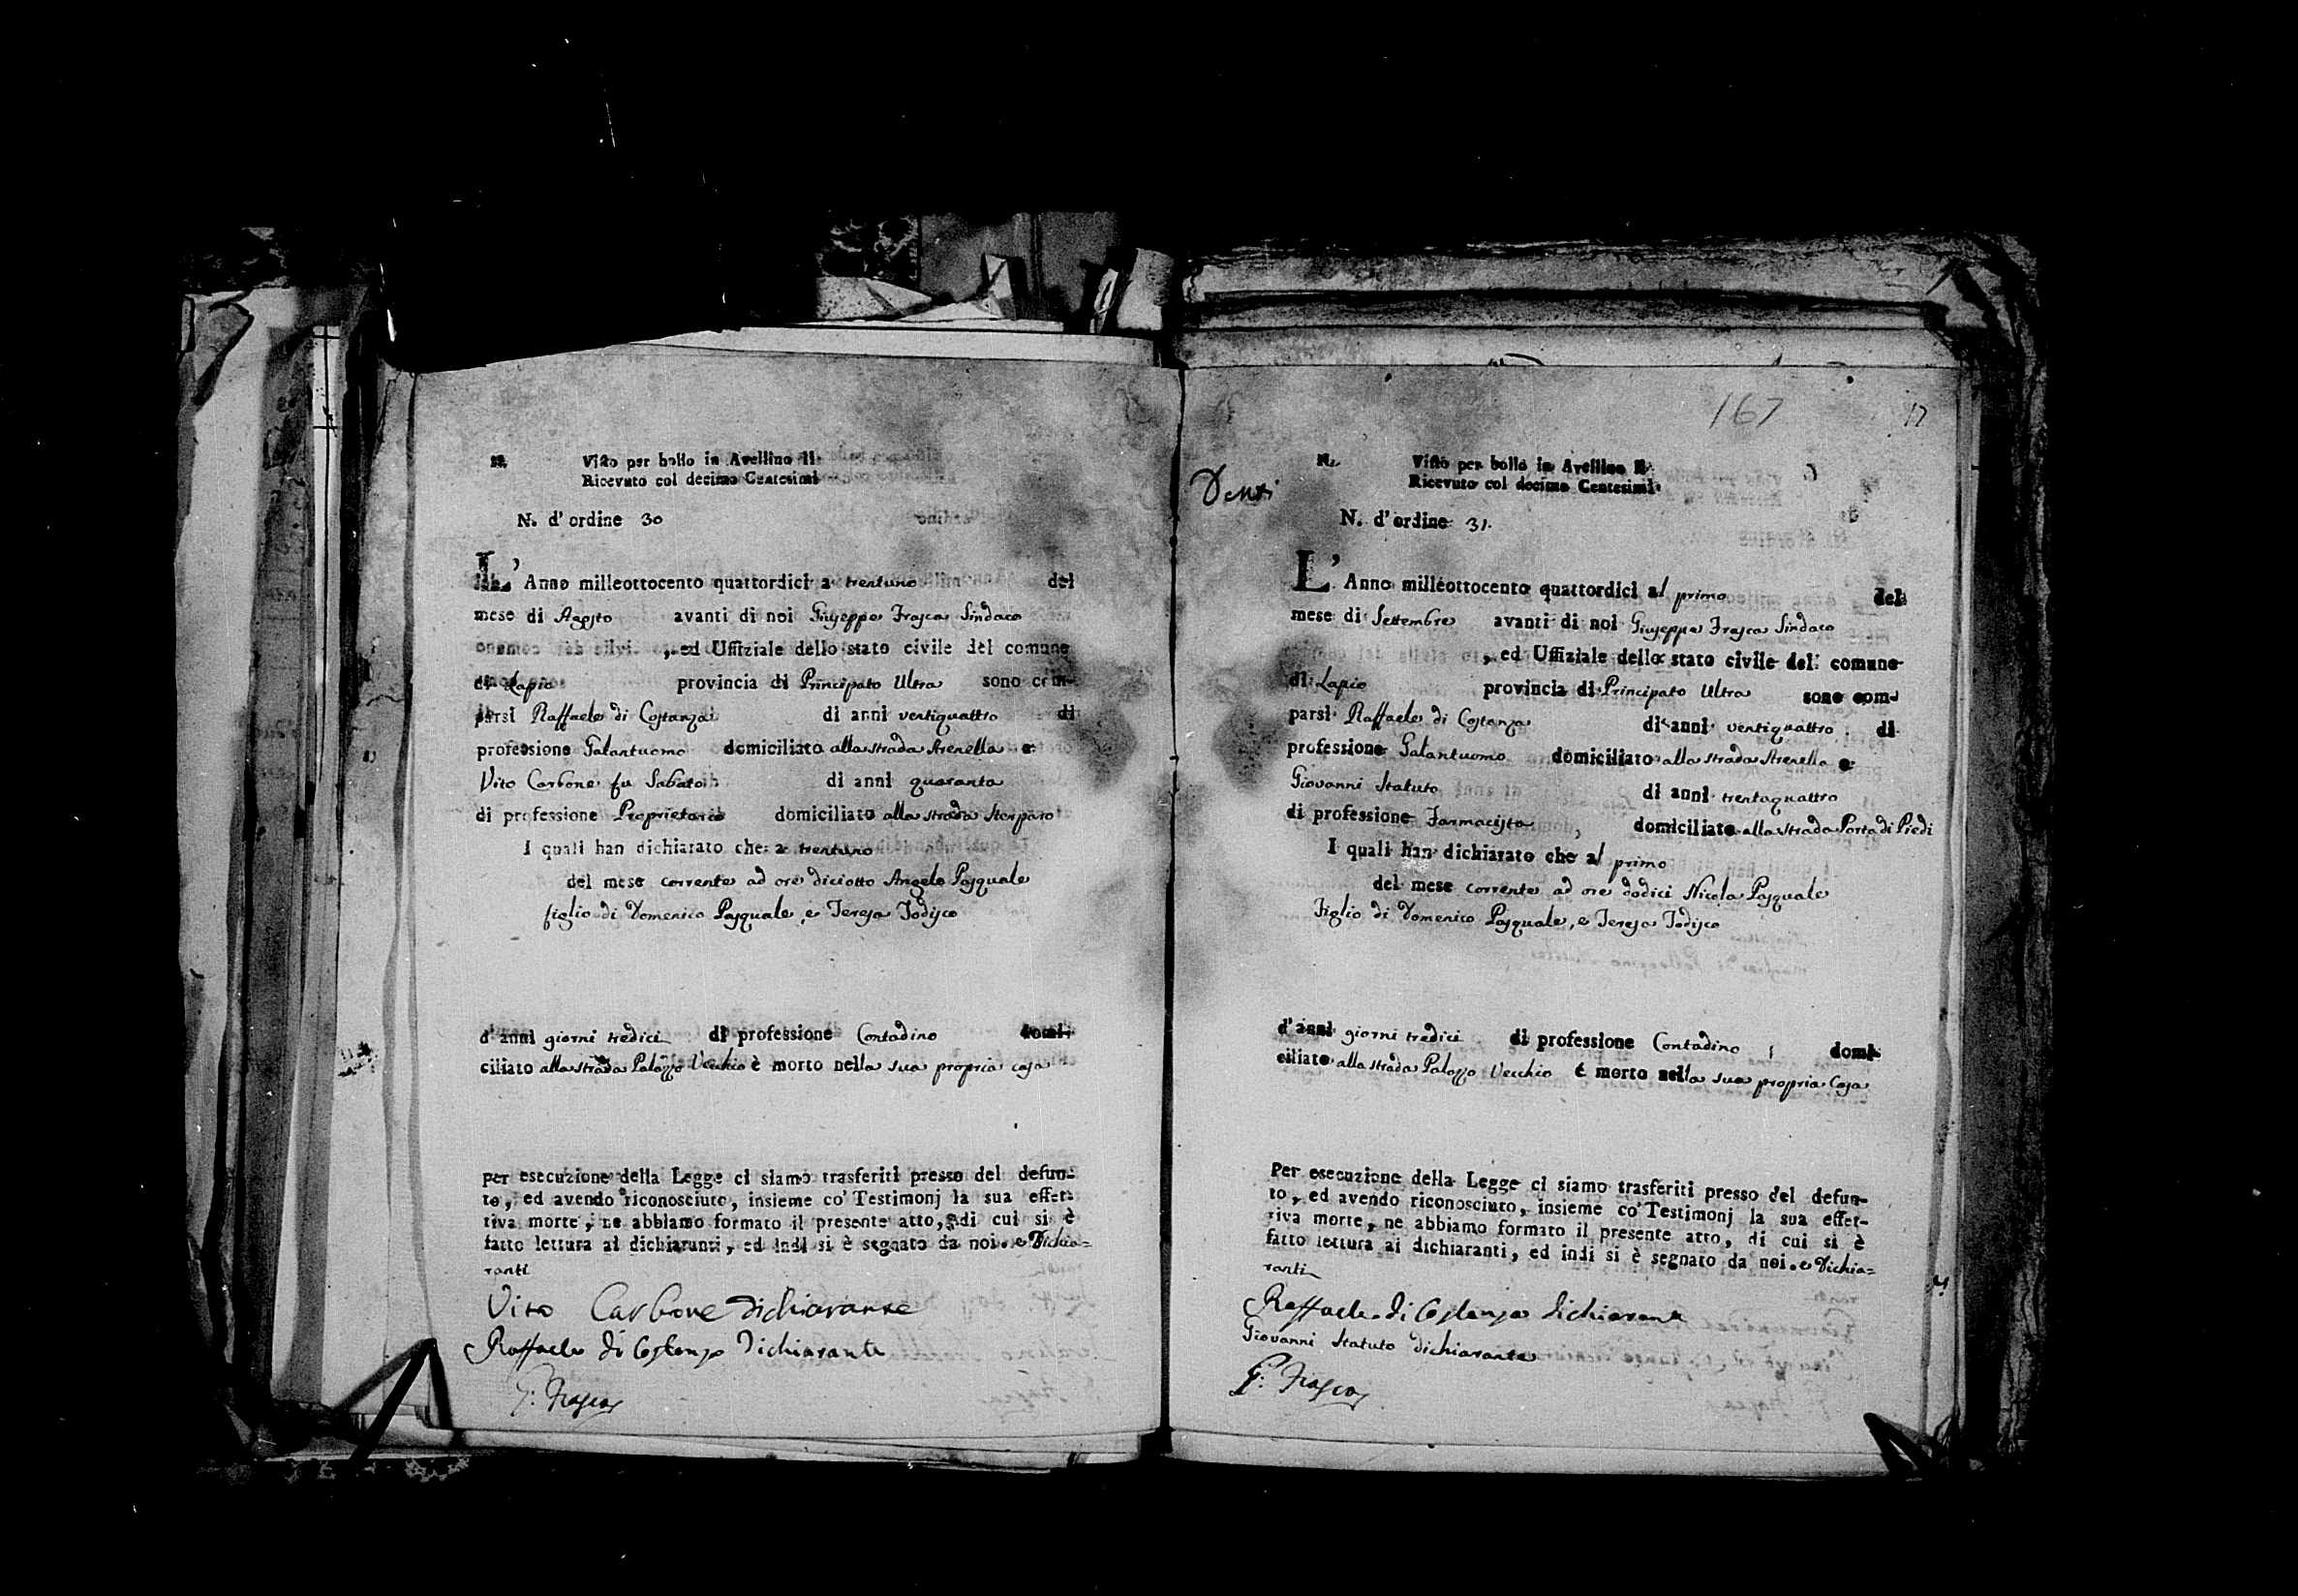 N. Visto per bollo in Avellino li
Ricevuto col decimo Centesimi
N. d'ordine 30
L'Anno milleottocento quattordici a trentuno del
mese di Agosto avanti di noi Giuseppe Frasca Sindaco
, ed Uffiziale dello stato civile del comune
di Lapio provincia di Principato Ultra sono com-
parsi Raffaele di Costanza di anni ventiquattro di
professione Galantuomo domiciliato alla strada Arenella e
Vito Carbone fu Sabato di anni quaranta
di professione Proprietario domiciliato alla strada Sterparo
I quali han dichiarato che a trentuno
del mese corrente ad ore diciotto Angelo Pasquale
figlio di Domenico Pasquale, e Teresa Jodisco
d'anni giorni tredici di professione Contadino domi-
ciliato alla strada Palazzo Vecchio è morto nella sua propria casa
per esecuzione della Legge ci siamo trasferiti presso del defun-
to, ed avendo riconosciuto, insieme co' Testimonj la sua effet-
tiva morte, ne abbiamo formato il presente atto, di cui si è
fatto lettura ai dichiaranti, ed indi si è segnato da noi. e Dichia=
ranti
Vito Carbone dichiarante
Raffaele di Costanzo Dichiarante
G. Frasca
167
17
N. Visto per bollo in Avellino li
Ricevuto col decimo Centesimi
N. d'ordine 31.
L'Anno milleottocento quattordici al primo del
mese di Settembre avanti di noi Giuseppe Frasca Sindaco
, ed Uffiziale dello stato civile del comune
di Lapio provincia di Principato Ultra sono com-
parsi Raffaele di Costanza di anni ventiquattro di
professione Galantuomo domiciliato alla strada Arenella e
Giovanni Statuto di anni trentaquattro
di professione Farmacista, domiciliato alla strada Porta di Piedi
I quali han dichiarato che al primo
del mese corrente ad ore dodici Nicola Pasquale
Figlio di Domenico Pasquale, e Teresa Jodisco
d'anni giorni tredici di professione Contadino domi-
ciliato alla strada Palazzo Vecchio è morto nella sua propria Casa
Per esecuzione della Legge ci siamo trasferiti presso del defun-
to, ed avendo riconosciuto, insieme co' Testimonj la sua effet-
tiva morte, ne abbiamo formato il presente atto, di cui si è
fatto lettura ai dichiaranti, ed indi si è segnato da noi. e Dichia=
ranti
Raffaele di Costanzo dichiarante
Giovanni Statuto dichiarante
G. Frasca